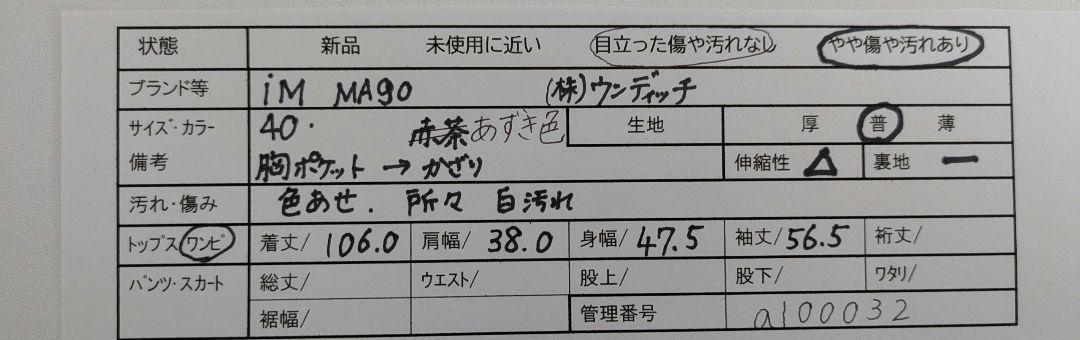 状態 新品 未使用に近い 目立った傷や汚れなし やや傷や汚れあり
ブランド等 iM MAGO (株)ウンディッチ
サイズ・カラー 40. 赤茶 あずき色 生地 厚 普 薄
備考 胸ポケット → かざり 伸縮性 △ 裏地 ー
汚れ・傷み 色あせ. 所々 白汚れ
トップス ワンピ 着丈/ 106.0 肩幅/ 38.0 身幅/ 47.5 袖丈/ 56.5 裄丈/
パンツ・スカート 総丈/ ウエスト/ 股上/ 股下/ ワタリ/
裾幅/ 管理番号 a100032